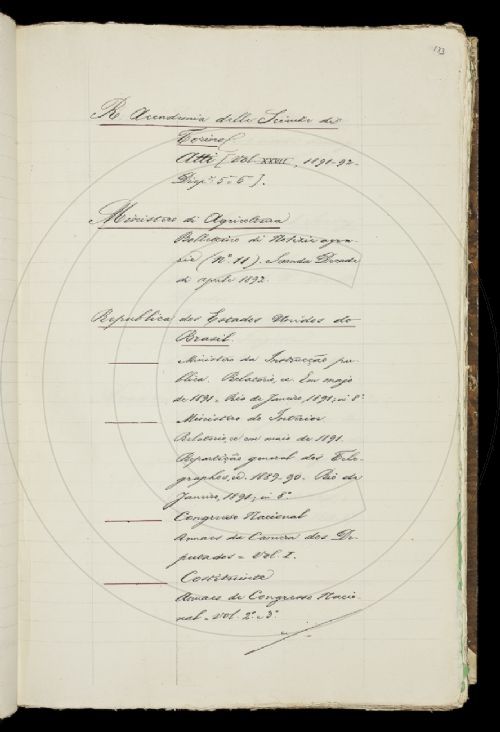 133
R. Accademia delle Scienze di
Torino
Atti [Vol. XXVII, 1891-92.
Disp. 5ª 6ª].
Ministero di Agricoltura
Bollettino di Notizie agra-
rie (Nº 11). Seconda Decade
di aprile 1892.
Republica dos Estados Unidos do
Brasil.
Ministero da Instrucção pu-
blica. Relatorio, ec. Em majo
de 1891 = Rio de Janeiro, 1891; in 8º
Ministero do Interior
Relatorio, ec em maio de 1891.
Repartição general dos Tele-
graphos, ec. 1889-90. Rio de
Janeiro, 1891; in 8º
Congresso Nacional
Annaes da Camera dos De-
putados = Vol. I.
Costituinte
Annaes do Congresso Nacio-
nal = Vol. 2º e 3º